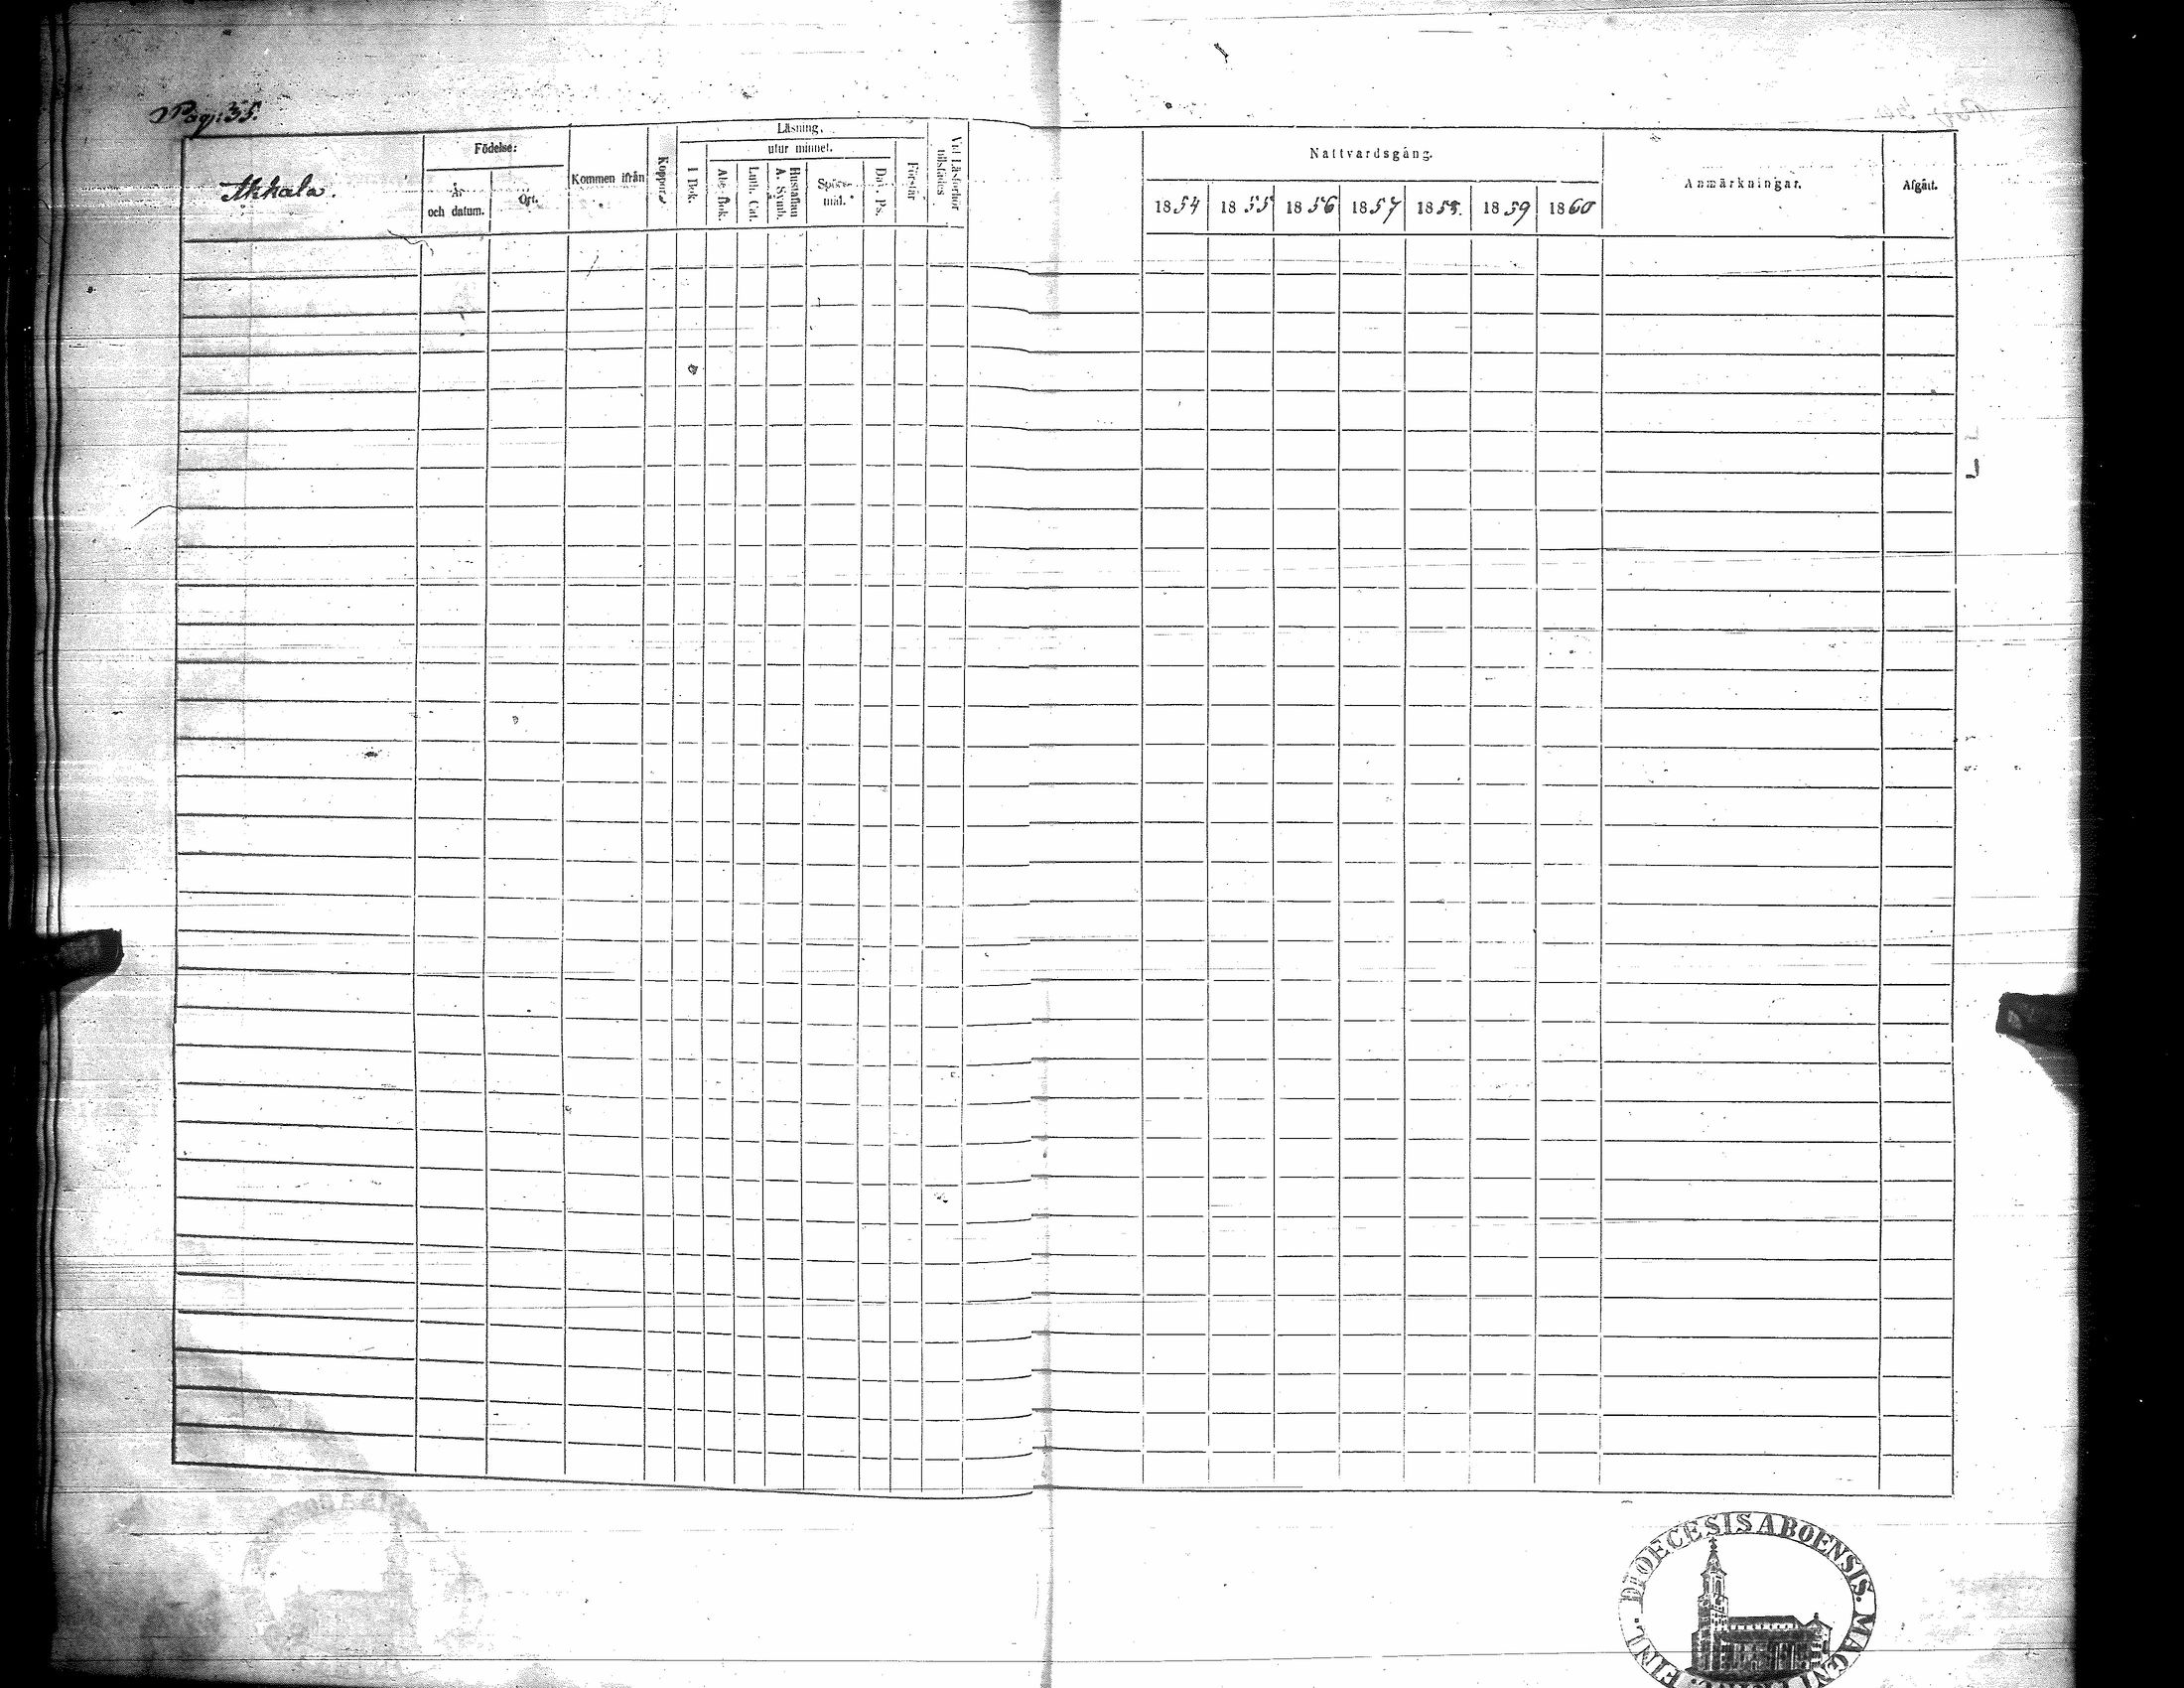 Pag. 35.
Akkala.
Födelse:
År och datum.
Ort.
Kommen ifrån
Koppor.
Läsning.
I Bok.
utur minnet.
Abc-Bok.
Luth. Cat.
Hustaflan A. Symb.
Spörsmål.
Dav. Ps.
Förstår
Vid Läsförhör tillstädes
Nattvardsgång.
1854 1855 1856 1857 1858. 1859 1860
Anmärkningar.
Afgått.
DIOECESIS ABOENSIS. MAGNI